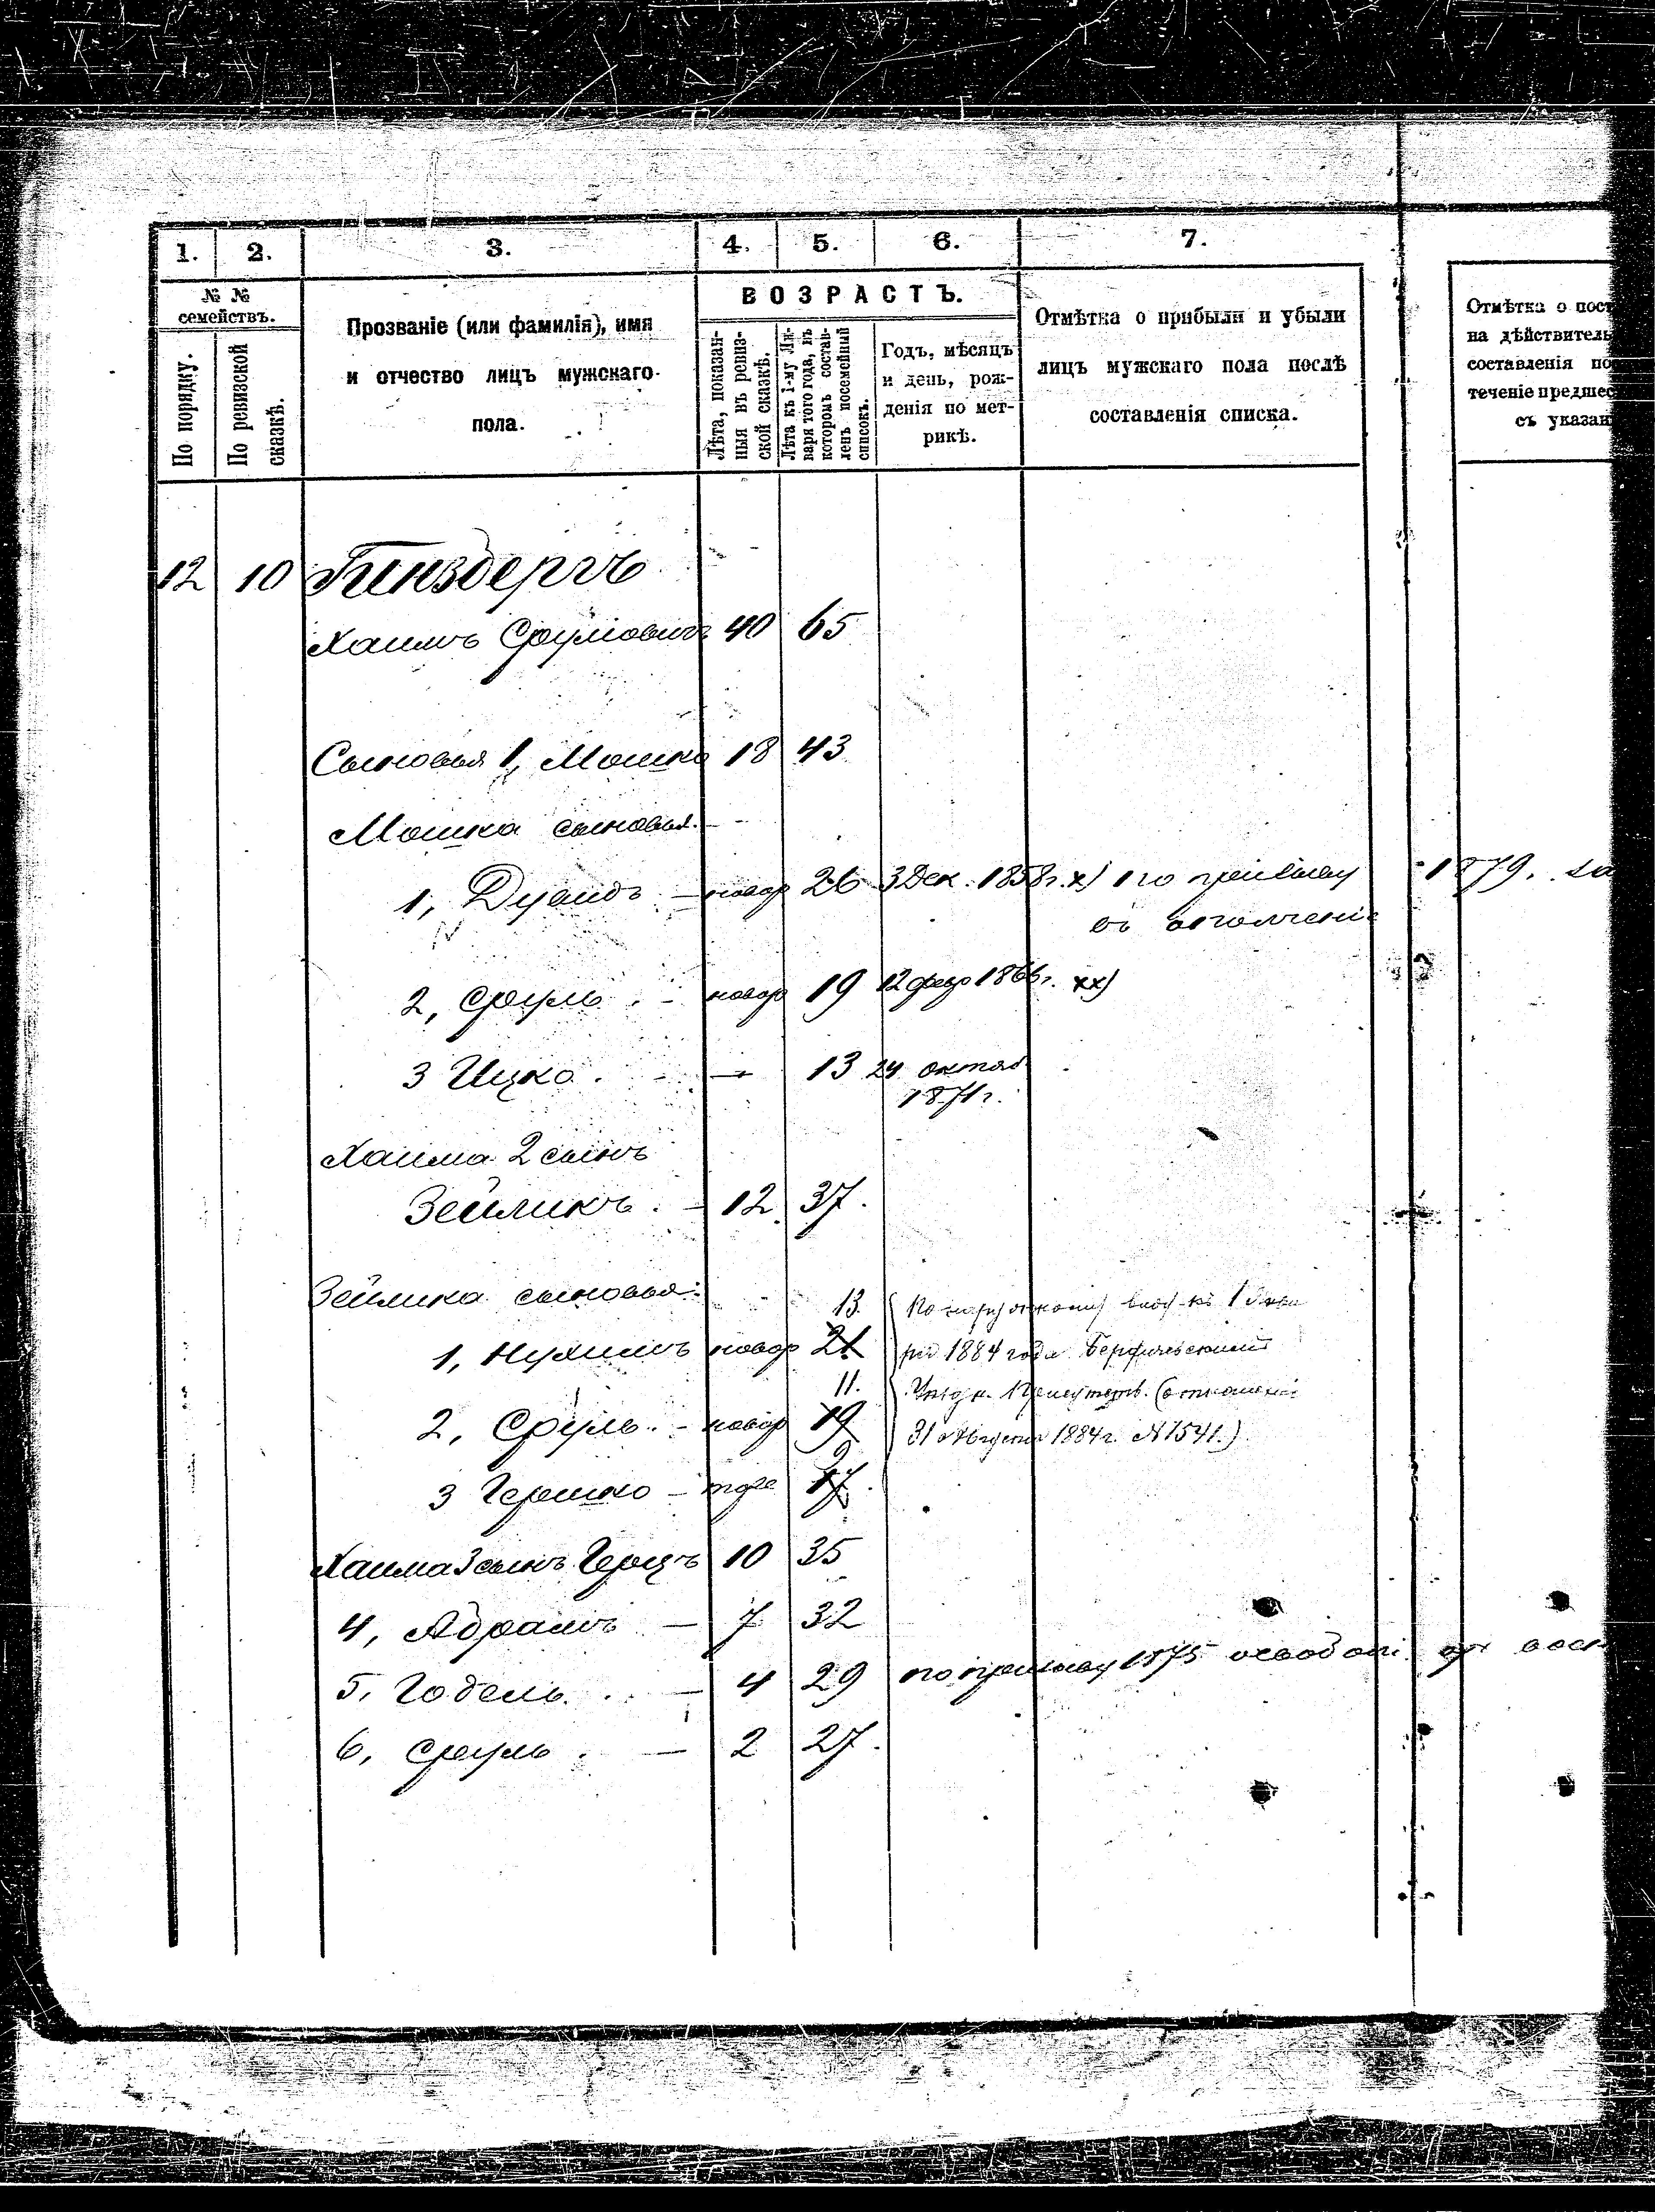 1. 2. 3. 4. 5. 6. 7.
№ №
семействъ.
По порядку.
По ревизской
сказкѣ.
Прозваніе (или фамилія), имя
и отчество лицъ мужскаго
пола.
ВОЗРАСТЪ.
Лѣта, показан-
ныя въ ревиз-
ской сказкѣ.
Лѣта къ 1-му Ян-
варя того года, въ
которомъ состав-
ленъ посемейный
списокъ.
Годъ, мѣсяцъ
и день, рож-
денія по мет-
рикѣ.
Отмѣтка о прибыли и убыли
лицъ мужскаго пола послѣ
составленія списка.
Отмѣтка о пост
на дѣйствитель
составленія по
теченіе предшес
съ указан
12 10 Гинзбергъ
Хаимъ Сруліовичъ 40 65
Сыновья 1, Мошко 18 43
Мошка сыновья
1, Дувидъ — новор 26 3 Дек. 1858г. х) по призыву 1879. за
въ ополченіе
2, Сруль - новор 19 12 февр 1866г. хх)
3 Ицко. — 13 24 октяб
1871г.
Хаима 2 сынъ
Зейликъ. — 12 37.
Зейлика сыновья: 13.
1, Нухимъ новор 21 По наружному виду къ 1 Янва
ря 1884 года Бердичевскимъ
11.
2, Сруль. - новор 19 Уѣздн. Присутств. (отношеніе
31 августа 1884г. №1541.)
9
3 Гершко — тоже 17.
Хаима 3 сынъ Герцъ 10 35
4, Абрамъ — 7 32
5, Годель. — 4 29 по призыву 1875 освобожд. от
6, Сруль. — 2 27.